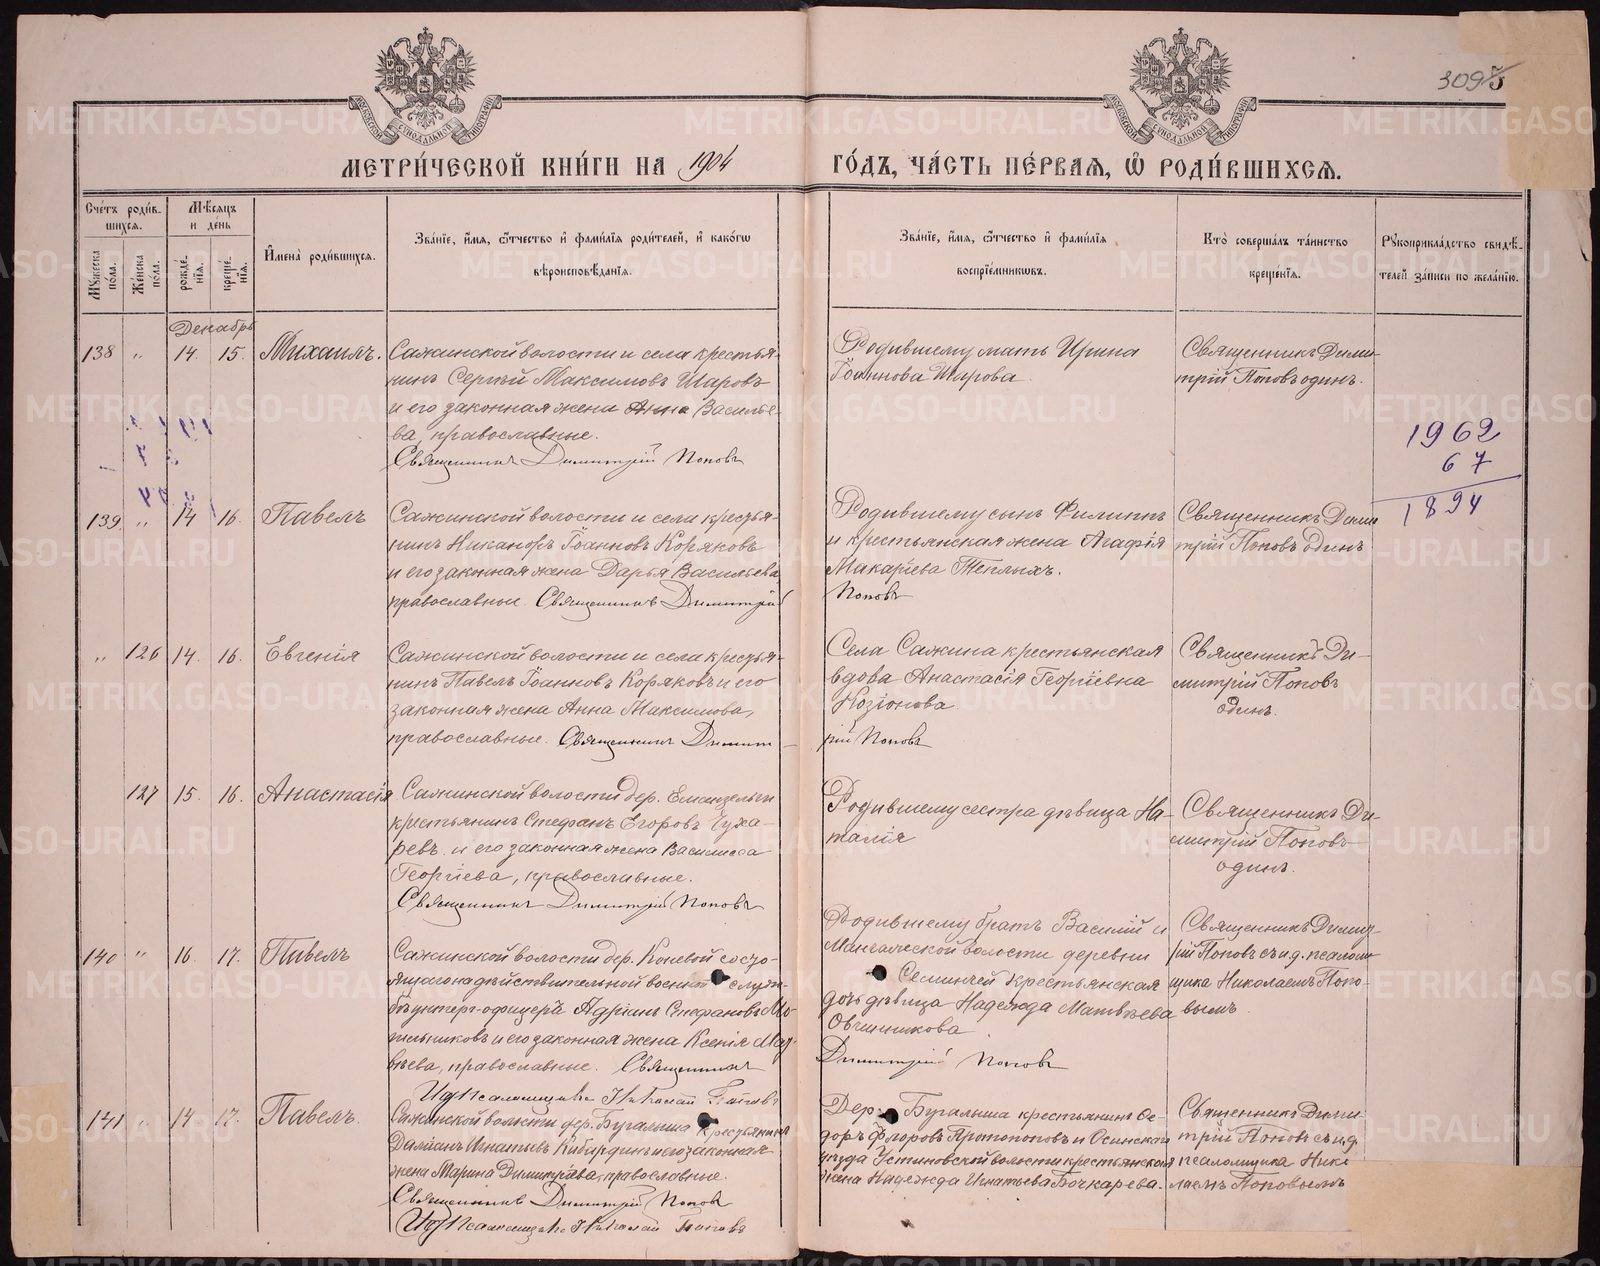 3095
МЕТРИ́ЧЕСКОЙ КНИ́ГИ НА 1904 ГО́ДЪ, ЧА́СТЬ ПЕ́РВАЯ, Ѽ РОДИ́ВШИХСЯ.
Счетъ роди́вшихся.
Мꙋжеска по́ла.
Же́нска по́ла.
Мѣ́сяцъ и де́нь
рожде́нїя.
креще́нїя.
Имена̀ роди́вшихся.
Зва́нїе, и́мя, ѻ́тчество и҆ фами́лїя роди́телей, и҆ како́гѡ
вѣроисповѣ́данїя.
Зва́нїе, и́мя, ѻ́тчество и҆ фами́лїя
воспрїе́мникѡвъ.
Кто̀ соверша́лъ та́инство
креще́нїя.
Рꙋкоприкла́дство свидѣ́-
телей за́писи по жела́нїю.
Декабрь
138 " 14. 15. Михаилъ.
Сажинской волости и села крестья-
нинъ Сергѣй Максимовъ Шаровъ
и его законная жена Анна Василье-
ва, православные.
Священникъ Димитрій Поповъ
Родившему мать Ирина
Іоаннова Шарова.
Священникъ Дими-
трій Поповъ одинъ.
1962
67
1894
139 " 14 16. Павелъ
Сажинской волости и села крестья-
нинъ Никаноръ Іоанновъ Коряковъ
и его законная жена Дарья Васильева,
православные. Священникъ Димитрій
Родившему сынъ Филиппъ
и крестьянская жена Агафія
Макаріева Теплыхъ.
Поповъ
Священникъ Дими
трій Поповъ одинъ
" 126 14. 16. Евгенія
Сажинской волости и села крестья-
нинъ Павелъ Іоанновъ Коряковъ и его
законная жена Анна Максимова,
православные. Священникъ Димит-
Села Сажина крестьянская
вдова Анастасія Георгіевна
рій Поповъ
Священникъ Ди-
митрій Поповъ
одинъ.
127 15. 16. Анастасія
Сажинской волости дер. Еманзельги
крестьянинъ Стефанъ Егоровъ Чуха-
ревъ и его законная жена Василисса
Георгіева, православные.
Священникъ Димитрій Поповъ
Родившему сестра дѣвица На-
талія
Священникъ Ди-
митрій Поповъ
одинъ.
140 " 16. 17. Павелъ
Сажинской волости дер. Коневой состо-
ящаго на дѣйствительной военной служ-
бѣ унтеръ-офицера Адріанъ Стефановъ
и его законная жена Ксенія Мат-
вѣева, православные. Священникъ
Родившему братъ Василій и
волости деревни
крестьянская
дочь дѣвица Надежда Матвѣева
Овчинникова
Димитрій Поповъ
Священникъ Димит-
рій Поповъ съ и.д. псалом-
щика Николаемъ Попо-
вымъ.
Ид Псаломщика Николай Поповъ
141 " 14 17. Павелъ.
Сажинской волости дер. Бугалыша крестьянинъ
Даміанъ Игнатьевъ Кибардинъ и его законная
жена Марина Димитріева, православные.
Священникъ Димитрій Поповъ
Ид Псаломщика Николай Поповъ
Дер. Бугалыша крестьянинъ Ѳе-
доръ Флоровъ Протопоповъ и Осинскаго
уѣзда Устиновской волости крестьянская
жена Надежда Игнатьева Бочкарева.
Священникъ Дими-
трій Поповъ съ и.д.
псаломщика Нико
лаемъ Поповымъ